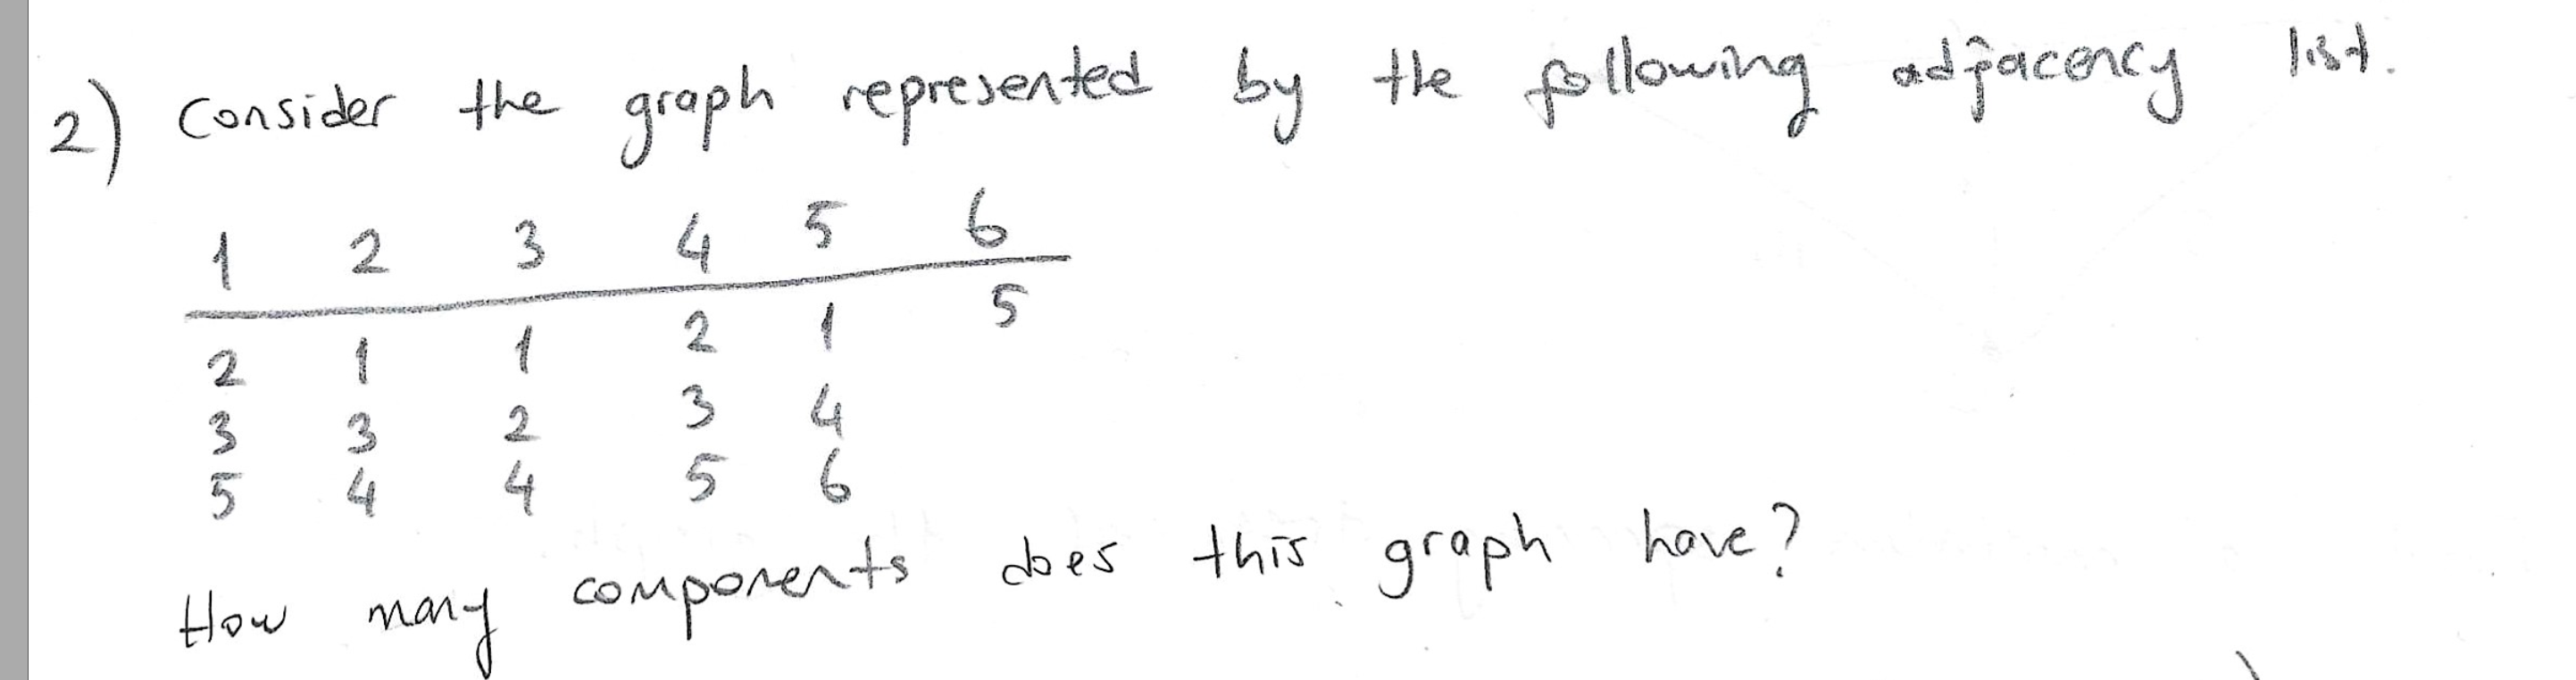 2) Consider the graph represented by the following adjacency list.
1 2 3 4 5 6
2 1 1 2 1 5
3 3 2 3 4
5 4 4 5 6
How many components does this graph have?